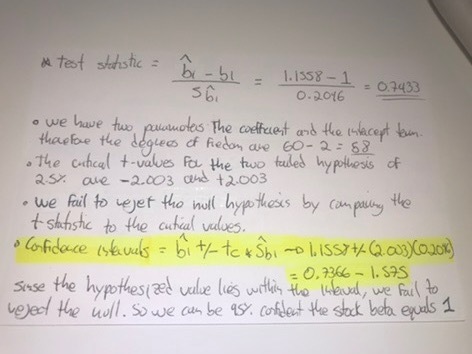 * test statistic = b̂1 - b1 / Sb̂1 = 1.1558 - 1 / 0.2096 = 0.7433
• we have two parameters The coefficient and the intercept term.
therefore the degrees of fredom are 60 - 2 = 58
• The critical t-values for the two tailed hypothesis of
2.5% are -2.003 and +2.003
• we fail to rejet the null hypothesis by comparing the
t-statistic to the critical values.
• Confidence intervals = b̂1 +/- tc * Sb̂1 → 1.1558 +/- (2.003)(0.2096)
= 0.7366 - 1.575
sinse the hypothesized value lies within the interval, we fail to
reject the null. So we can be 95% confident the stock beta equals 1